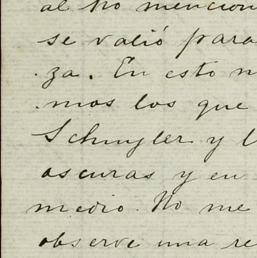 al No mencion
se valió para
za. En esto n
mos los que
Schuyler y l
oscuras y en
medio. No me
observé una re